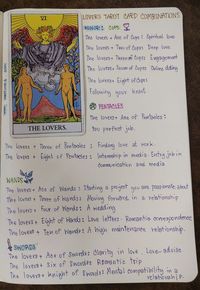 LOVERS TAROT CARD COMBINATIONS
VI
THE LOVERS
CUPS
The lovers + Ace of Cups : Spiritual love
The lovers + Two of Cups : Deep love
The lovers + Three of Cups : Engagement
The lovers + Seven of Cups : Online dating
The lovers + Eight of Cups :
Following your heart.
PENTACLES
The lovers + Ace of Pentacles :
Your perfect job.
The lovers + Three of Pentacles : Finding love at work
The lovers + Eight of Pentacles : Internship in media. Entry job in
communication and media
WANDS
The lovers + Ace of Wands : Starting a project you are passionate about
The lovers + Three of Wands : Moving forward in a relationship
The lovers + Four of Wands : A wedding
The lovers + Eight of Wands : Love letters. Romantic correspondence
The lovers + Ten of Wands : A high maintenance relationship.
SWORDS
The lovers + Ace of Swords : Clarity in love. Love-advise
The lovers + Six of Swords : Romantic Trip
The lovers + Knight of Swords : Mental compatibility in a
relationship.